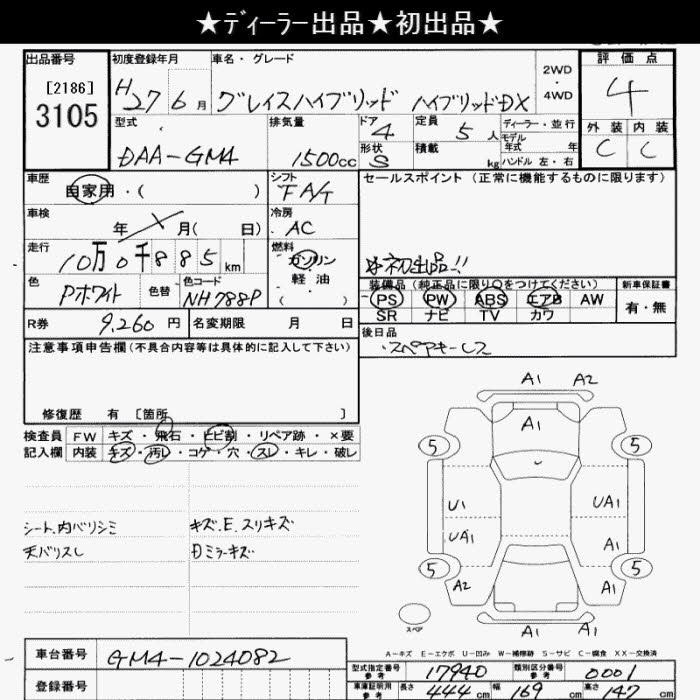 ★ディーラー出品★初出品★
出品番号
[2186]
3105
初度登録年月
H27 6月
車名・グレード
グレイスハイブリッド ハイブリッドDX
2WD
・
4WD
評価点
4
外装 内装
C C
型式
DAA-GM4
排気量
1500cc
ドア
4
形状
S
定員
5人
積載
kg
ディーラー・並行
モデル
年式 年
ハンドル 左・右
車歴
自家用・( )
シフト
FAT
車検
年 月( 日)
冷房
AC
走行
10万0千885km
燃料
ガソリン
軽油
( )
色
Pホワイト
色替
色コード
NH788P
R券
9,260円
名変期限 月 日
セールスポイント(正常に機能するものに限ります)
☆初出品!!
装備品(純正品に限り○をつけてください)
PS PW ABS エアB AW
SR ナビ TV カワ
新車保証書
有・無
後日品
・スペアキーレス
注意事項申告欄(不具合内容等は具体的に記入して下さい)
修復歴 有 〔箇所 〕
検査員
記入欄
FW キズ・飛石・ヒビ割・リペア跡・×要
内装 キズ・汚レ・コゲ・穴・スレ・キレ・破レ
シート、内バリシミ
天バリスレ
キズ、E、スリキズ
Dミラーキズ
A1 A2
A1
5 5
U1 UA1
UA1 A1
5 5
A2 A1
A1 A1
スペア
A-キズ E-エクボ U-凹み W-補修跡 S-サビ C-腐食 XX-交換済
車台番号
GM4-1024082
登録番号
型式指定番号
参考
17940
類別区分番号
参考
0001
車庫証明用
参考
長さ 444cm 幅 169cm 高さ 147cm